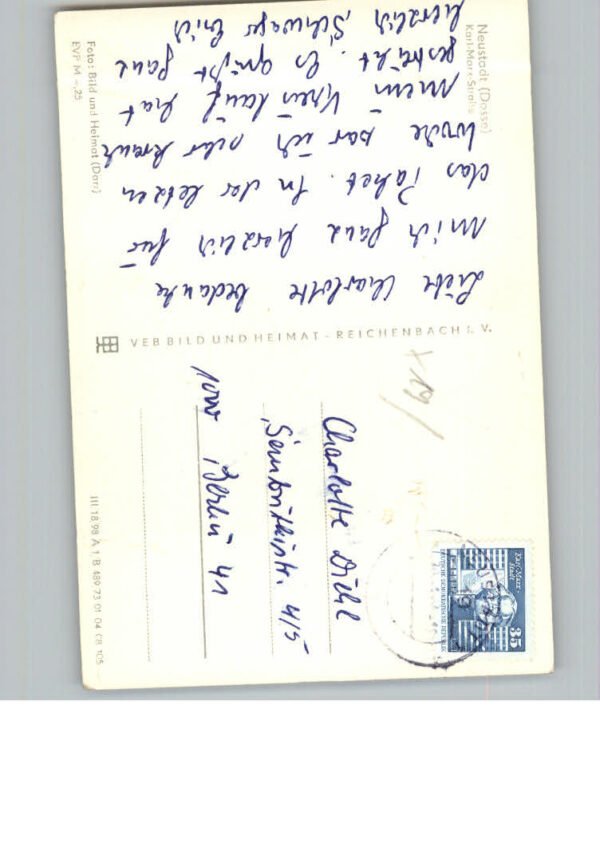 Neustadt (Dosse)
Karl-Marx-Straße
Liebe Charlotte bedanke
mich ganz herzlich für
das Paket. In der letzen
Woche war ich sehr krank
mein Kreislauf hat
gestreikt. Es grüßt ganz
herzlich Schwager Erich
Foto: Bild und Heimat (Darr)
EVP M -,25
VEB BILD UND HEIMAT - REICHENBACH i. V.
Charlotte Diehl
4/5
1000 Berlin 41
III 18 98 A 1 B 489 73 01 04 08 105
Karl-Marx-
Stadt
35
DEUTSCHE DEMOKRATISCHE REPUBLIK